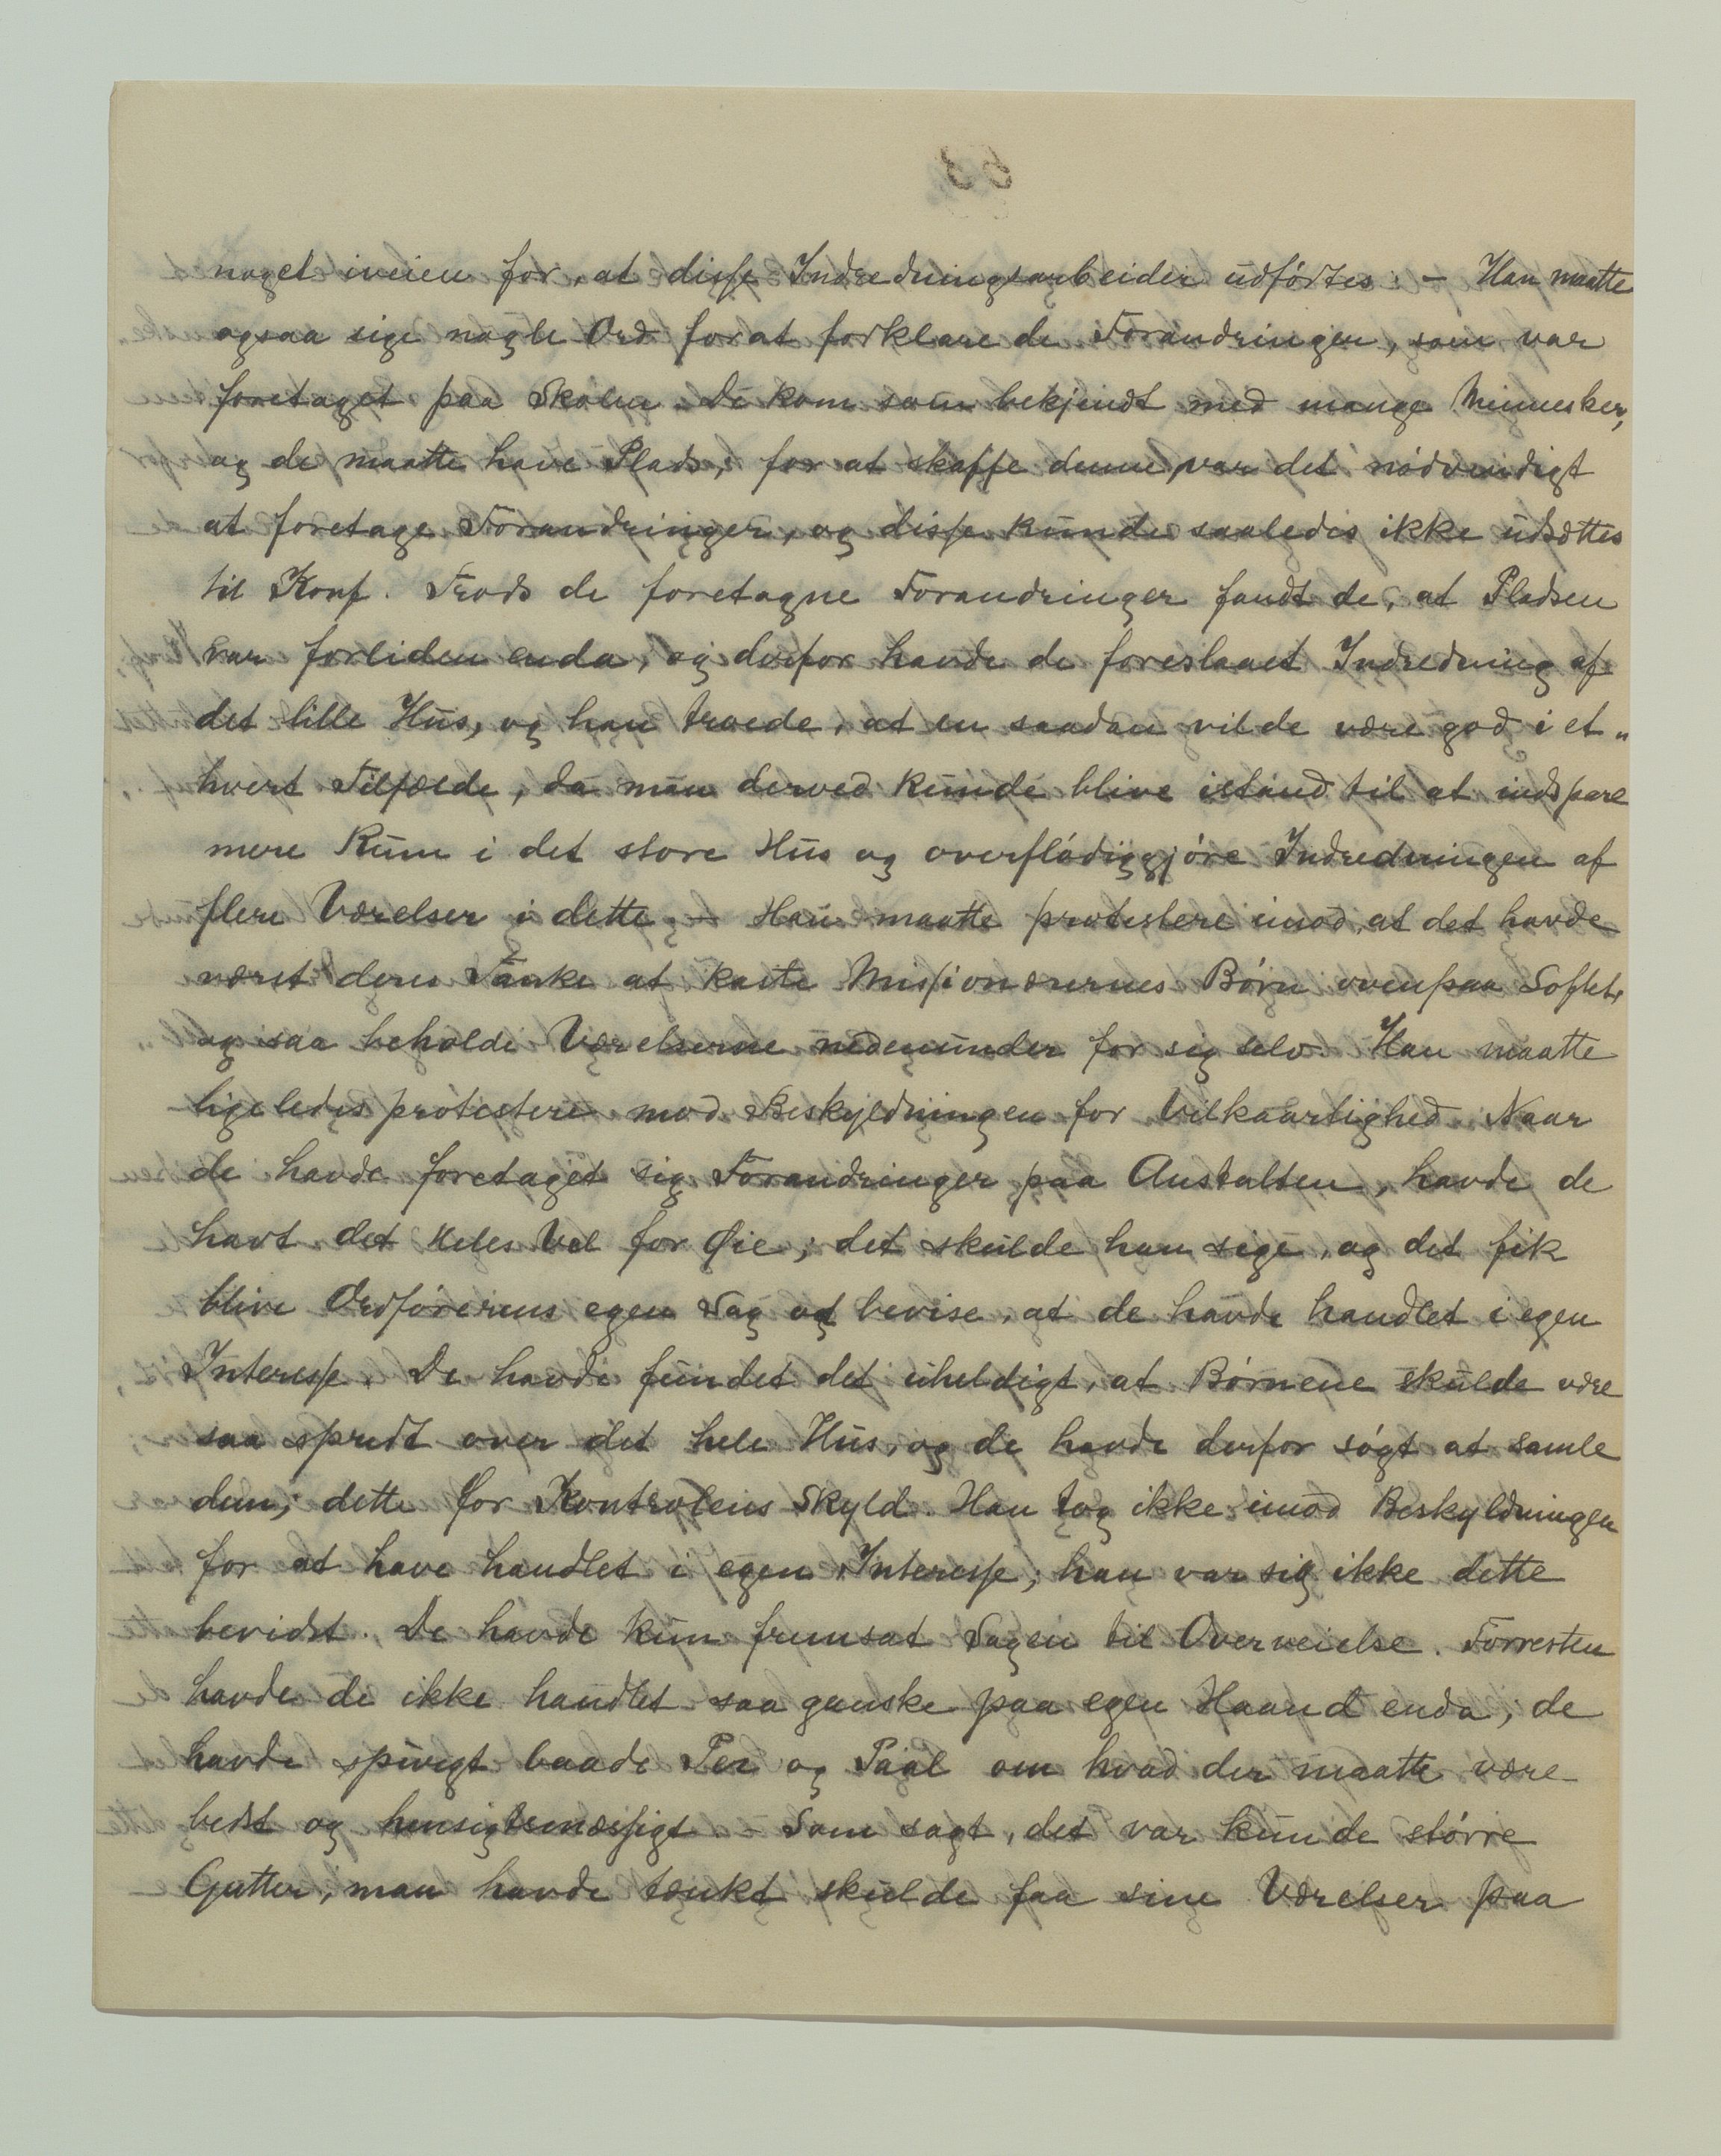 noget iveien for, at disse Indredningsarbeider udførtes. – Han maatte
ogsaa sige nogle Ord forat forklare de Forandringer, som var
foretaget paa Skolen. De kom som bekjendt med mange Mennesker,
og de maatte have Plads; for at skaffe denne, var det nødvendigt
at foretage Forandringer, og disse kunde saaledes ikke udsættes
til Konf. Trods de foretagne Forandringer fandt de, at Pladsen
var forliden enda, og derfor havde de foreslaaet Indredning af
det lille Hus, og han troede, at en saadan vilde være god i et„
hvert Tilfælde, da man derved kunde blive istand til at indspare
mere Rum i det store Hus og overflødiggjøre Indredningen af
flere Værelser i dette. – Han maatte protestere imod, at det havde
været deres Tanke at kaste Missionærernes Børn ovenpaa Loftet,
og saa beholde Værelserne nedenunder for sig selv. Han maatte
ligeledes protestere mod Beskyldningen for Vilkaarlighed. Naar
de havde foretaget sig Forandringer paa Anstalten, havde de
havt det Heles Vel for Øie; det skulde han sige, og det fik
blive Ordførerens egen Sag at bevise, at de havde handlet i egen
Interesse. De havde fundet det uheldigt, at Børnene skulde være
saa spredt over det hele Hus, og de havde derfor søgt at samle
dem; dette for Kontrolens Skyld. Han tog ikke imod Beskyldningen
for at have handlet i egen Interesse; han var sig ikke dette
bevidst. De havde kun fremsat Sagen til Overveielse. Forresten
havde de ikke handlet saa ganske paa egen Haand enda; de
havde spurgt baade Per og Paal om hvad der maatte være
bedst og hensigtsmæssigt – Som sagt, det var kun de større
Gutter, man havde tænkt skulde faa sine Værelser paa